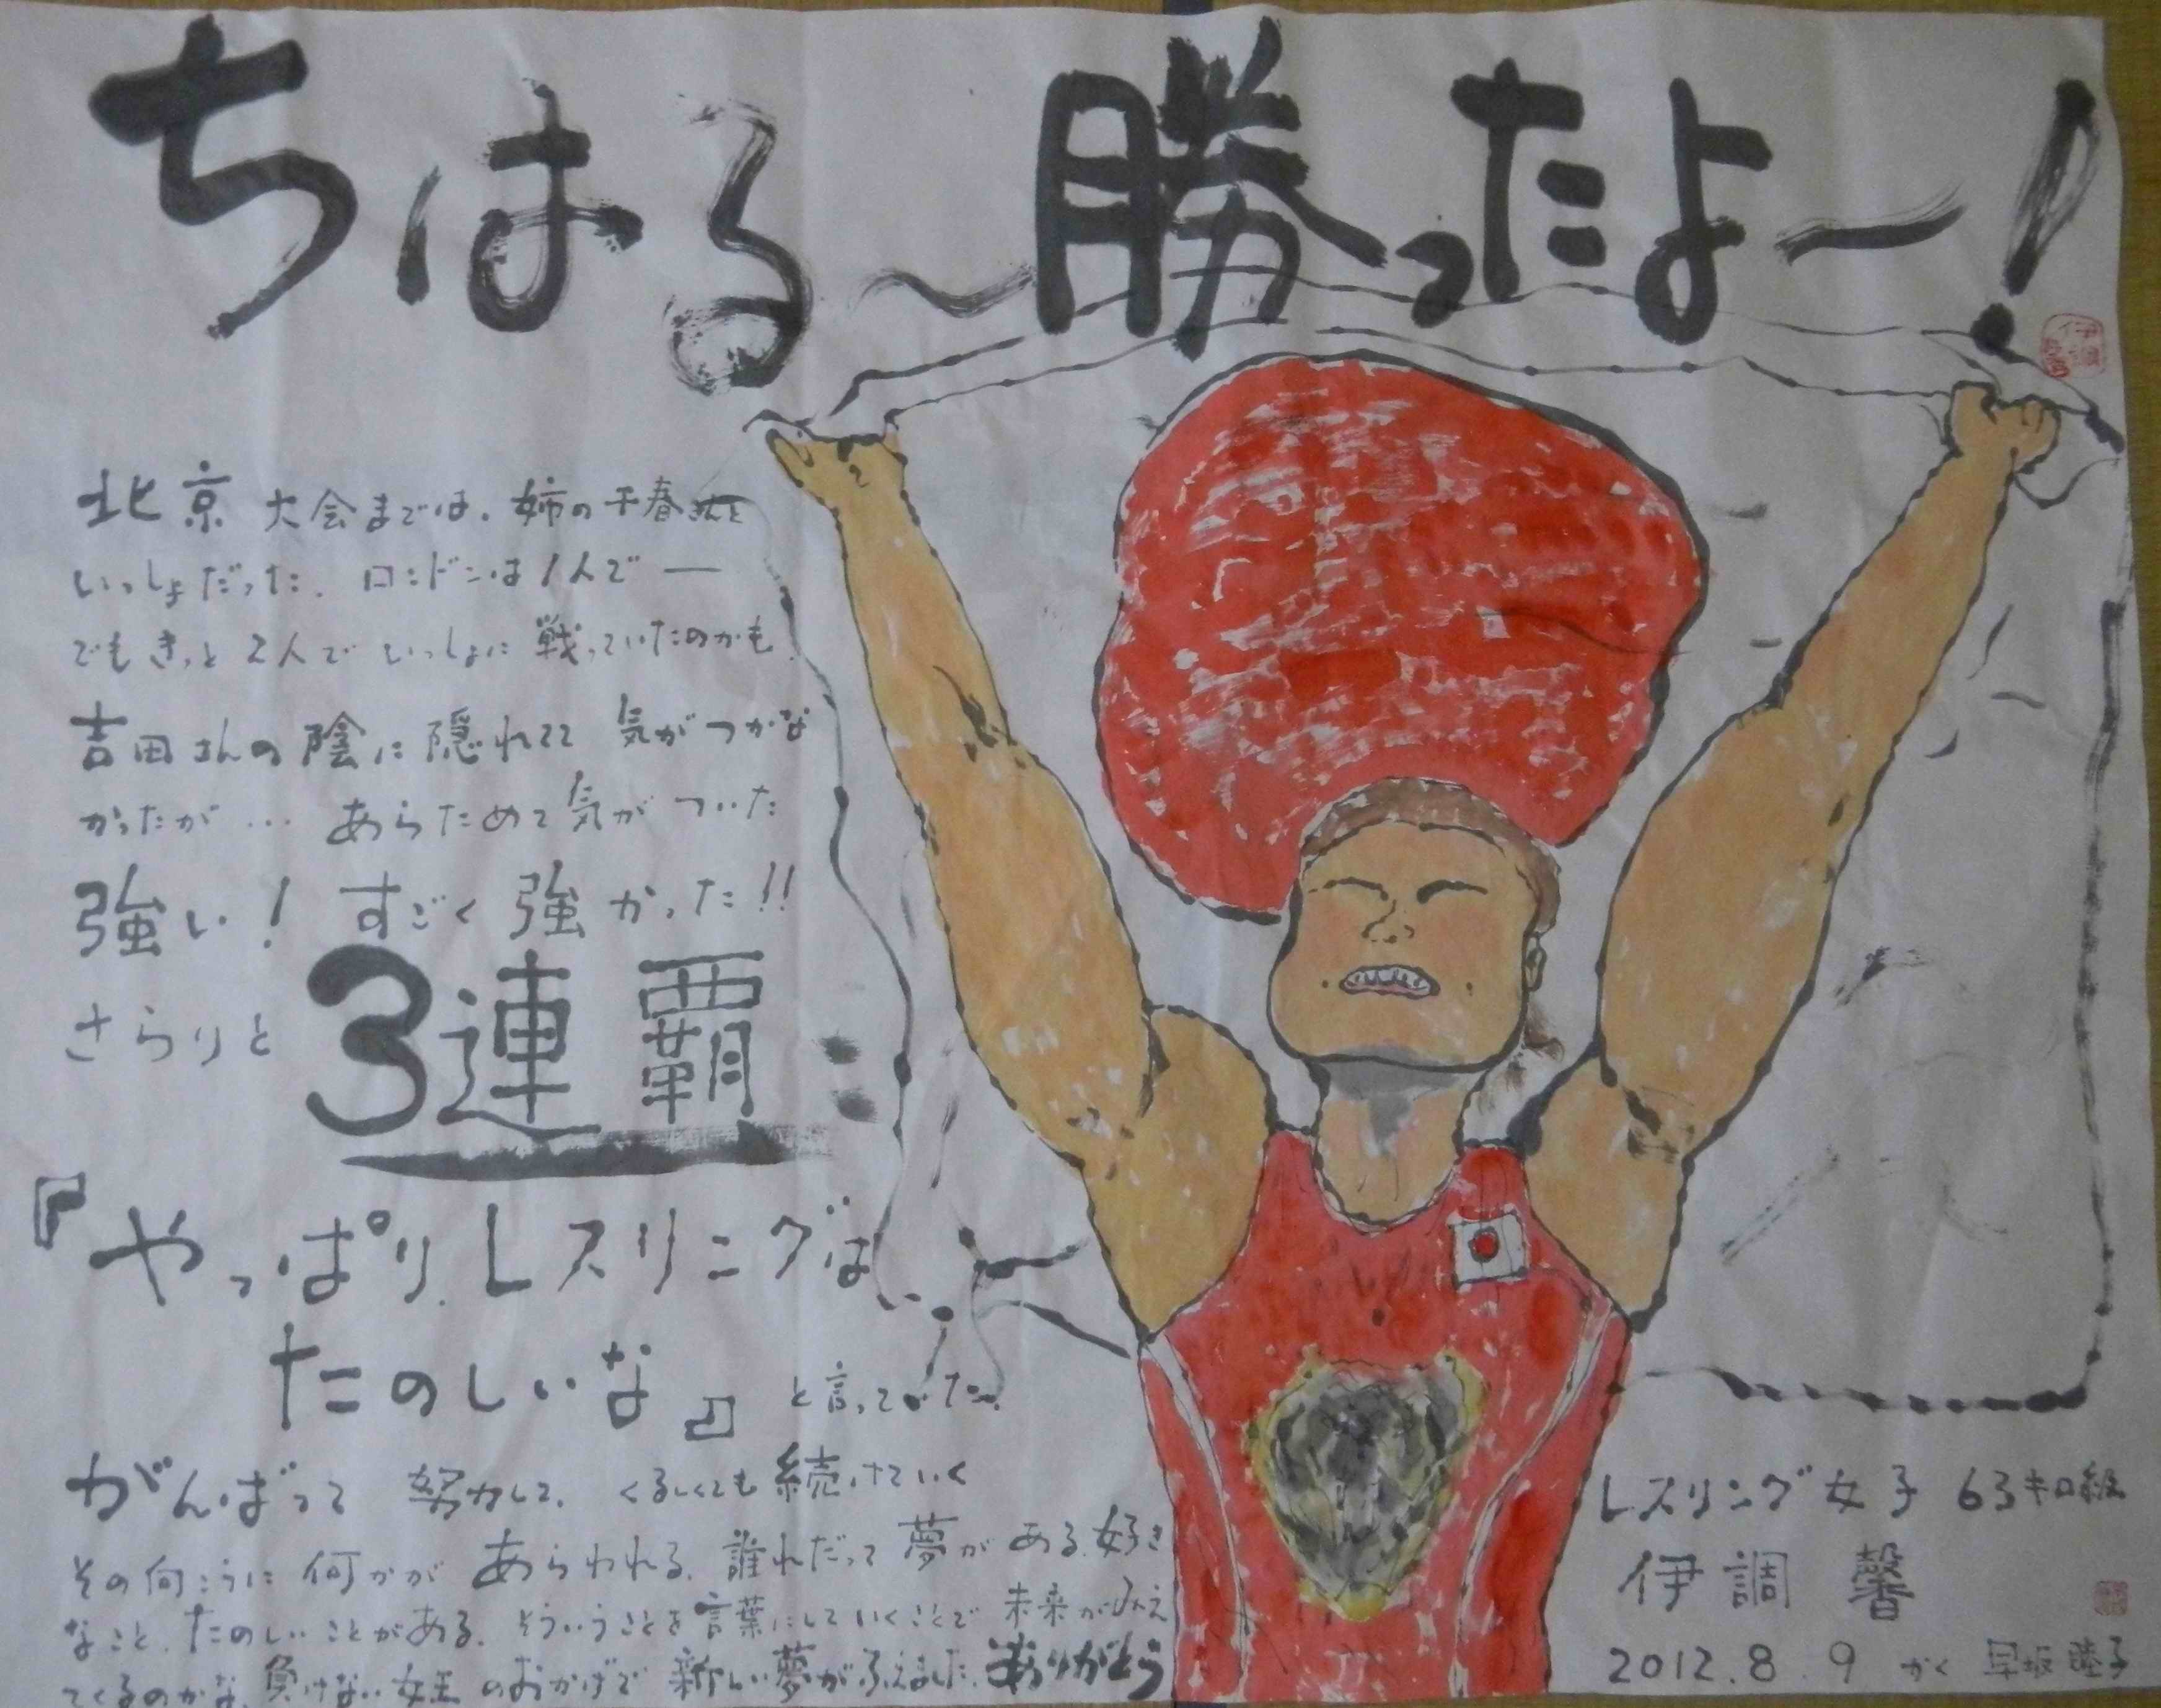 ちはる〜勝ったよ〜!
北京大会までは、姉の千春さんと
いっしょだった。ロンドンは1人で―
でもきっと2人でいっしょに戦っていたのかも、
吉田さんの陰に隠れてて気がつかな
かったが…あらためて気がついた
強い!すごく強かった!!
さらりと3連覇
『やっぱり、レスリングは
たのしいな』と言っていた。
がんばって努力して、くるしくても続けていく
その向こうに何かがあらわれる。誰れだって夢がある。好き
なこと、たのしいことがある。そういうことを言葉にしていくことで未来がみえ
てくるのかな。負けない女王のおかげで新しい夢がふえました。ありがとう
レスリング女子63キロ級
伊調 馨
2012.8.9 かく 早坂 陸子